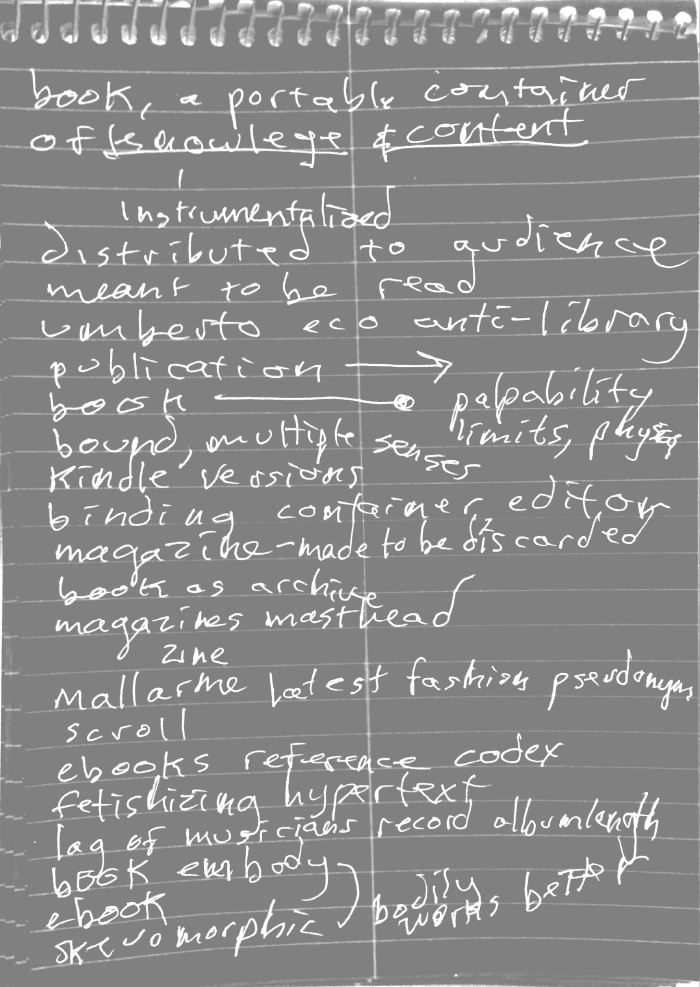 book, a portable container
of knowledge & content
instrumentalized
distributed to audience
meant to be read
umberto eco anti-library
publication →
book palpability
limits, physic
bound, multiple senses
Kindle versions
binding container, edition
magazine - made to be discarded
book as archive
magazines masthead
zine
Mallarme Latest fashion pseudonyms
scroll
ebooks reference codex
fetishizing hypertext
lag of musicians record album length
book embody
ebook bodily
skeuomorphic works better